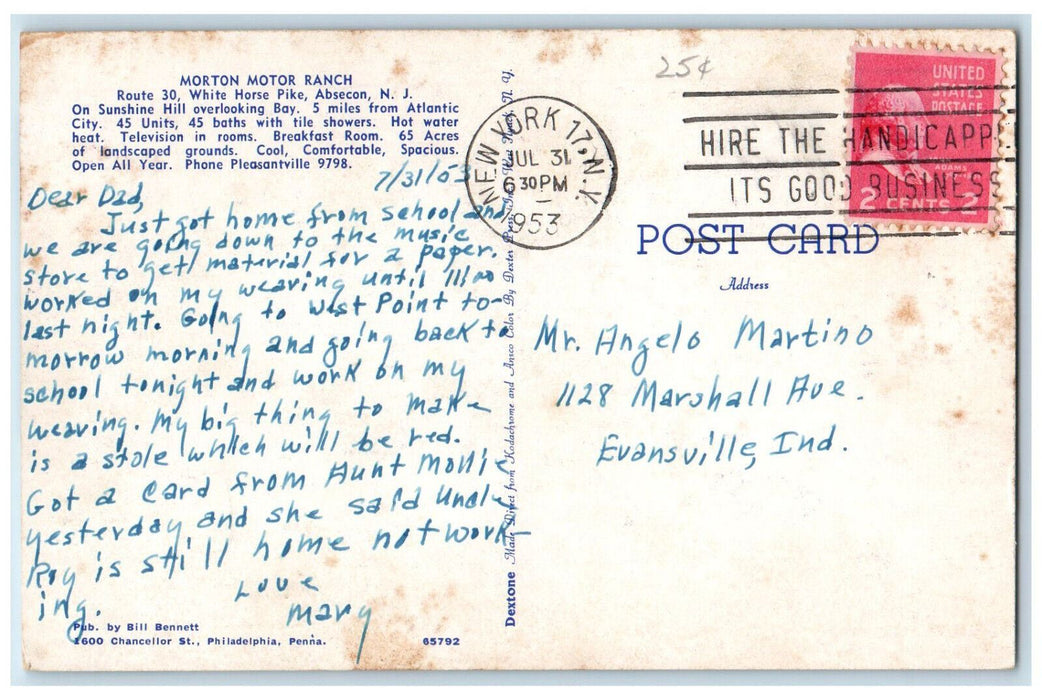 MORTON MOTOR RANCH
Route 30, White Horse Pike, Absecon, N. J.
On Sunshine Hill overlooking Bay. 5 miles from Atlantic
City. 45 Units, 45 baths with tile showers. Hot water
heat. Television in rooms. Breakfast Room. 65 Acres
of landscaped grounds. Cool, Comfortable, Spacious.
Open All Year. Phone Pleasantville 9798.
7/31/53
Dear Dad,
Just got home from school and
we are going down to the music
store to get material for a paper.
worked on my weaving until 11:00
last night. Going to West Point to-
morrow morning and going back to
school tonight and work on my
weaving. My big thing to make
is a stole which will be red.
Got a card from Aunt Mollie
yesterday and she said Uncle
Roy is still home not work-
ing.
Love
Mary
Pub. by Bill Bennett
1600 Chancellor St., Philadelphia, Penna.
65792
Dextone Made Direct from Kodachrome and Ansco Color By Dexter Press, N. Y.
25¢
NEW YORK 17, N.Y.
JUL 31
6 30 PM
1953
HIRE THE HANDICAPP
ITS GOOD BUSINESS
UNITED
STATES
POSTAGE
2 CENTS 2
POST CARD
Address
Mr. Angelo Martino
1128 Marshall Ave.
Evansville, Ind.